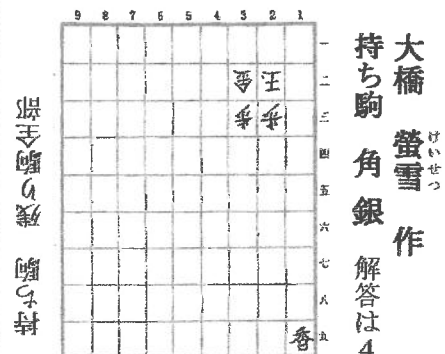 大橋 螢雪 作
けいせつ
持ち駒 角 銀 解答は4
9 8 7 6 5 4 3 2 1
一
二
三
四
五
六
七
八
九
金 玉
歩 歩
香
持ち駒 残り駒全部